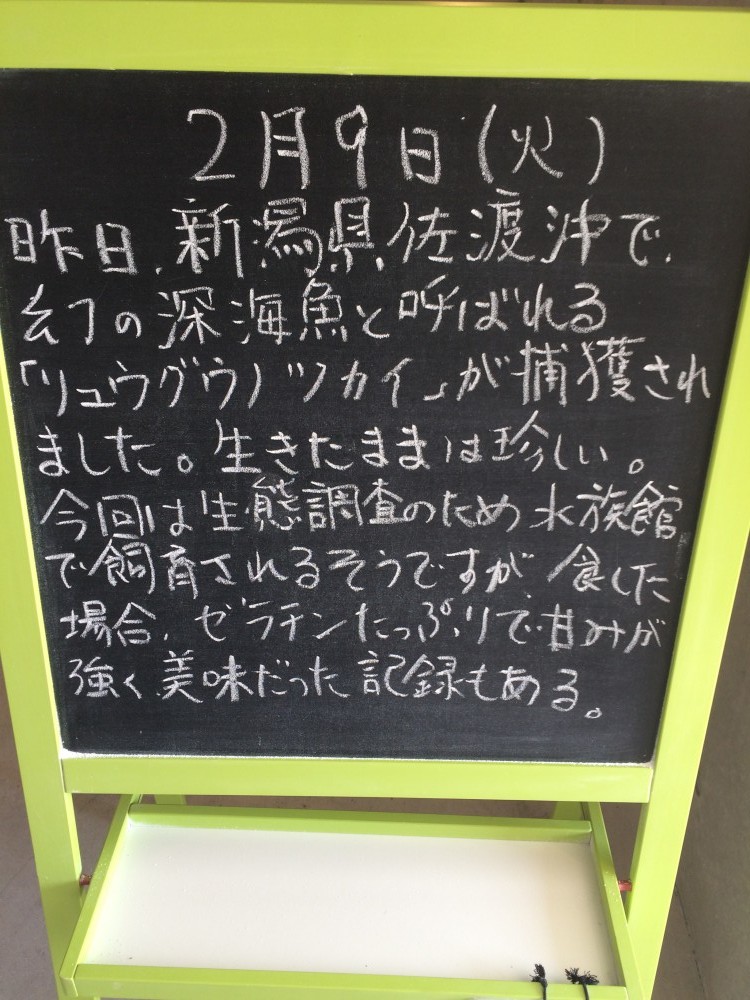 2月9日(火)
昨日、新潟県佐渡沖で、
幻の深海魚と呼ばれる
「リュウグウノツカイ」が捕獲され
ました。生きたままは珍しい。
今回は生態調査のため水族館
で飼育されるそうですが、食した
場合、ゼラチンたっぷりで甘みが
強く美味だった記録もある。